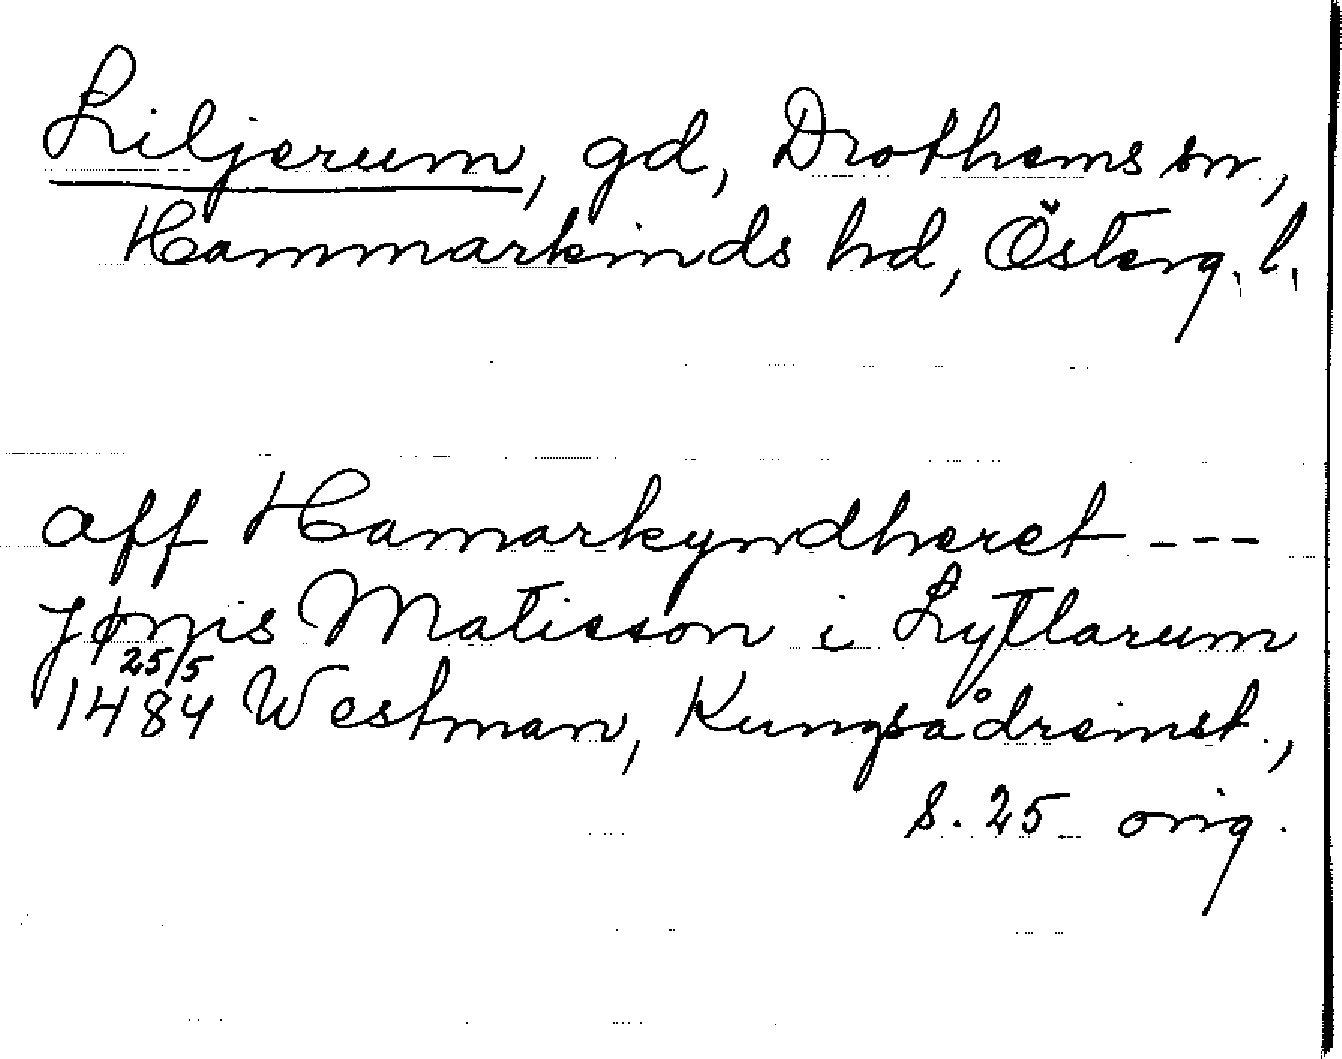 Liljerum, gd, Drothems sn,
Hammarkinds hd, Österg. l.
aff Hamarkyndheret ---
jønis Matisson i Lytlarum
25/5
1484 Westman, Kungsådreinst.,
s. 25 orig.